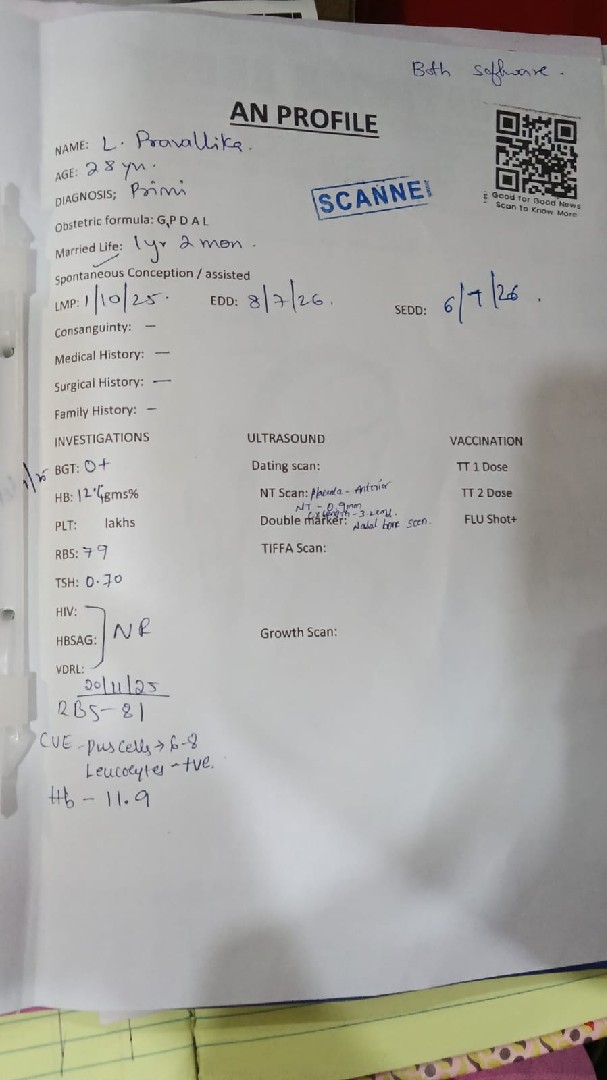 Both software.
AN PROFILE
NAME: L. Pravallika.
AGE: 28 yr.
DIAGNOSIS; Primi
SCANNE
Good for Good News
Scan to Know More
Obstetric formula: G,P D A L
Married Life: 1 yr 2 mon.
Spontaneous Conception / assisted
LMP: 1/10/25. EDD: 8/7/26. SEDD: 6/7/26.
Consanguinty: —
Medical History: —
Surgical History: —
Family History: —
INVESTIGATIONS ULTRASOUND VACCINATION
BGT: O+ Dating scan: TT 1 Dose
HB: gms% NT Scan: Placenta - Anterior TT 2 Dose
NT - 0.9mm
PLT: lakhs Double marker: Nasal bone seen. FLU Shot+
RBS: 79 TIFFA Scan:
TSH: 0.70
HIV:
HBSAG: NR Growth Scan:
VDRL:
20/11/25
RBS - 81
CUE - Pus cells → 6-8
Leucocytes - +ve.
Hb - 11.9